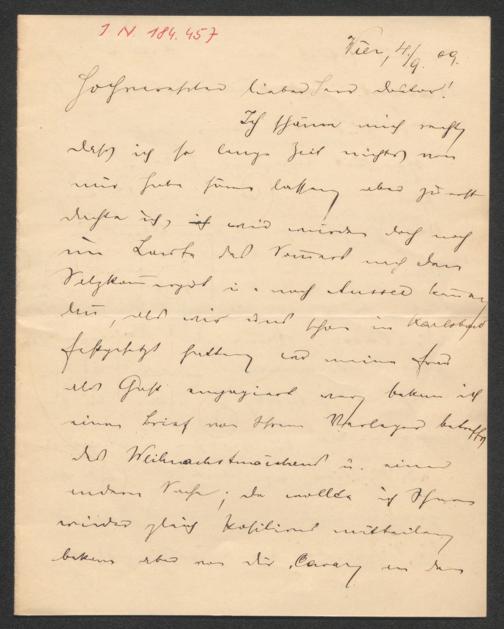 I N 184.457
Wien, 4/9. 09.
Hochverehrter lieber Herr Doktor!
Ich schäme mich recht,
daß ich so lange Zeit nichts von
mir habe hören lassen, aber zuerst
dachte ich, ich wir würden doch noch
im Laufe des Sommers nach dem
Salzkammergut u. nach Aussee kommen
dann, als wir uns schon in Karlsbad
festgesetzt hatten, wo meine Frau
als Gast engagiert war, bekam ich
einen Brief von Ihrem Verleger betreffs
des Weihnachtsmärchens u. einer
andern Sache; da wollte ich Ihnen
wieder gleich Positives mitteilen,
bekam aber von Dir. in dem